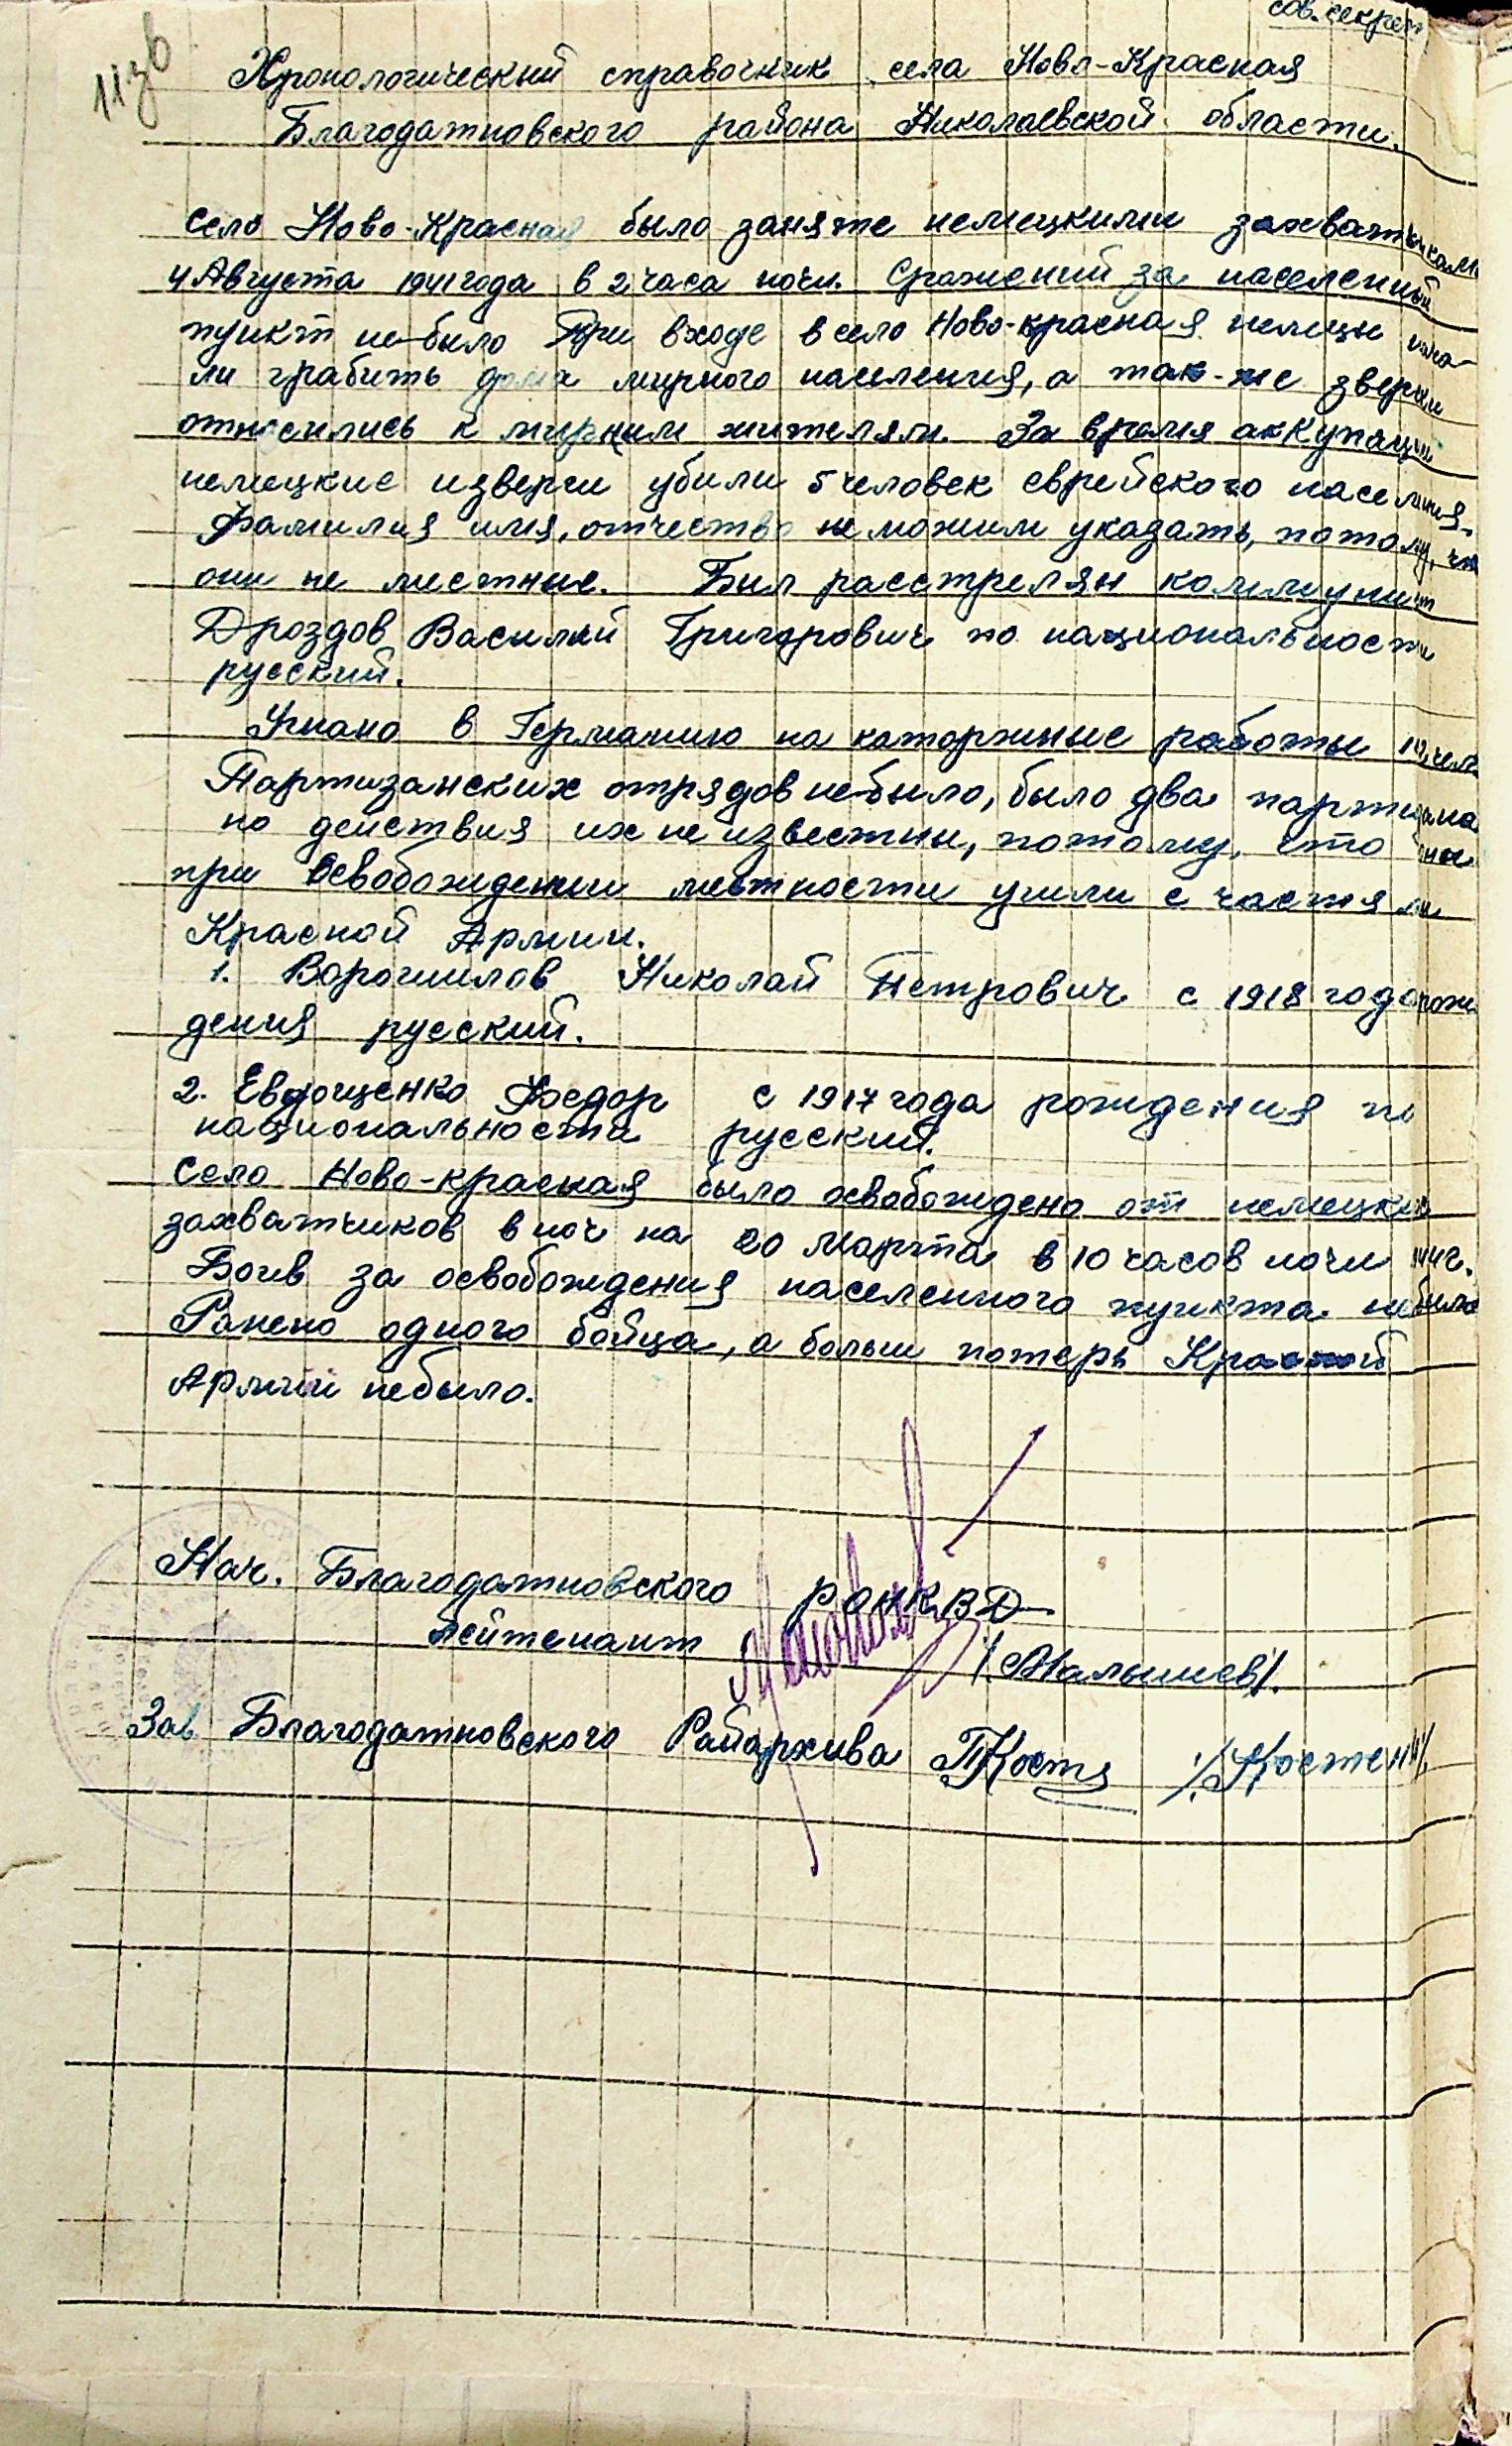 сов. секрет
113в
Хронологический справочник села Ново-Красная
Благодатновского района Николаевской области.
Село Ново-Красная было заняте немецкими захватчиками
4 Августа 1941 года в 2 часа ночи. Сражений за населенный
пункт небыло При входе в село Ново-красная немцы нача-
ли грабить дома мирного населения, а так-же зверски
относились к мирным жителям. За время аккупации
немецкие изверги убили 5 человек еврейского населения.
Фамилия имя, отчество не можим указать, потому, что
они не местные. Был расстрелян коммунист
Дроздов Василий Григорович по национальности
русский.
Угнано в Германию на каторжные работы чел.
Партизанских отрядов небыло, было два партизана
но действия их не известны, потому, что они
при освобождении местности ушли с частями
Красной Армии.
1. Ворошилов Николай Петрович с 1918 года рож-
дения русский.
2. Евдощенко Федор с 1917 года рождения по
национальности русский.
Село Ново-красная было освобождено от немецких
захватчиков в ноч на 20 Марта в 10 часов ночи 1944г.
Боив за освобождения населенного пункта небыло
Ранено одного бойца, а больш потерь Красной
Армии небыло.
Нач. Благодатновского РОНКВД
лейтенант /Малышев/.
Зав Благодатновского Райархива ТКостя /Костен